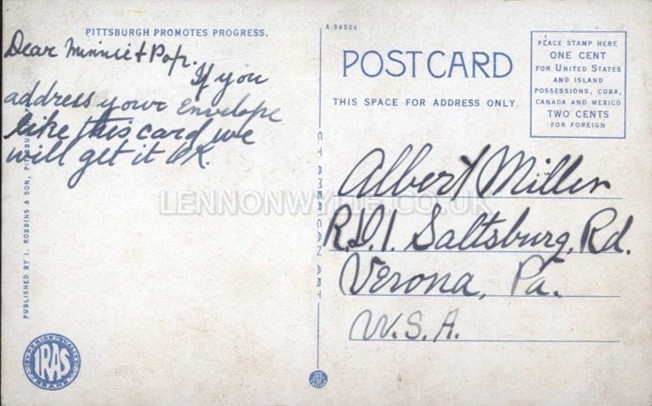 PITTSBURGH PROMOTES PROGRESS.
Dear Minnie & Pop.
If you
address your Envelope
like this card we
will get it OK.
PUBLISHED BY I. ROBBINS & SON, PITTSBURG
IRAS
A-94556
POST CARD
THIS SPACE FOR ADDRESS ONLY.
PLACE STAMP HERE
ONE CENT
FOR UNITED STATES
AND ISLAND
POSSESSIONS, CUBA,
CANADA AND MEXICO
TWO CENTS
FOR FOREIGN
Albert Miller
R.D.1. Saltsburg, Rd.
Verona, Pa.
U.S.A.
LENNONWYLIE.CO.UK